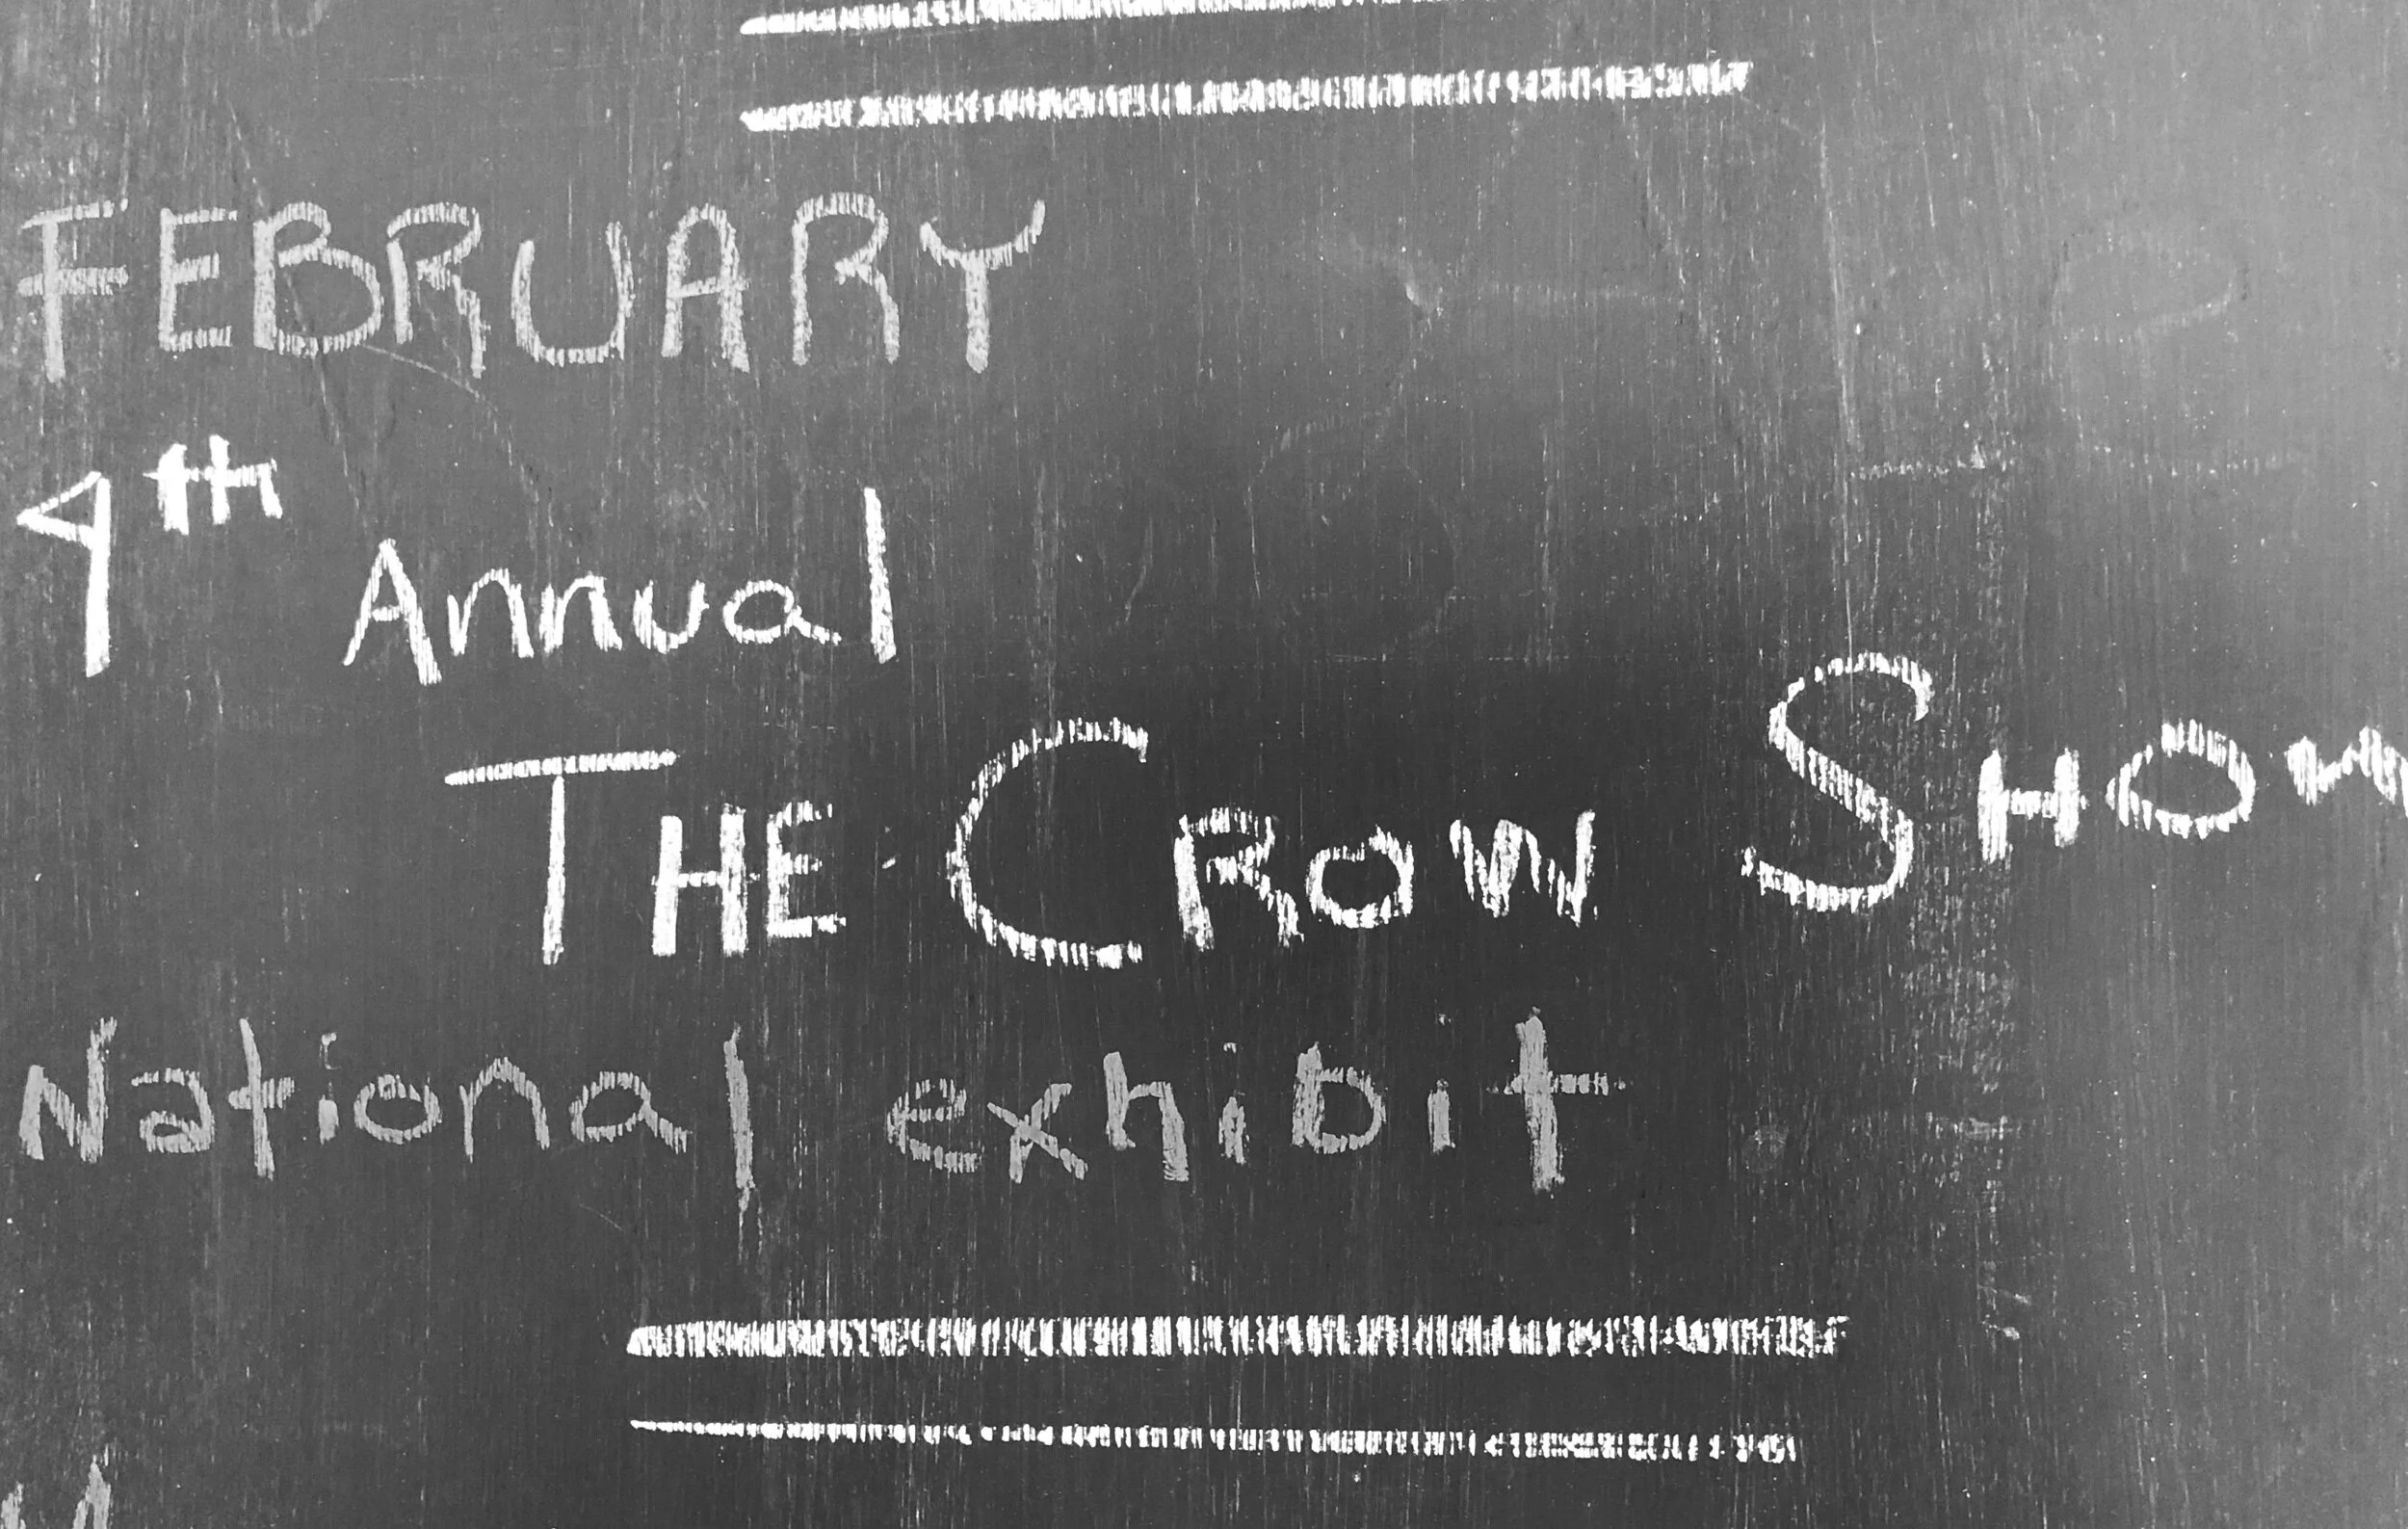 FEBRUARY
9th Annual
THE CROW SHOW
National exhibit